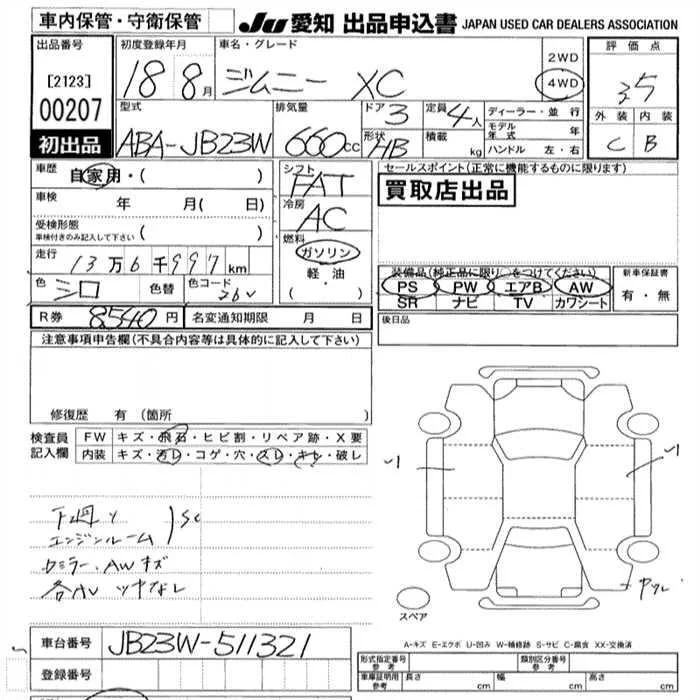 車内保管・守衛保管
JU愛知 出品申込書 JAPAN USED CAR DEALERS ASSOCIATION
出品番号
[2123]
00207
初出品
初度登録年月 車名・グレード
18 8月 ジムニー XC
2WD
4WD
評価点
3.5
外装 内装
C B
型式 排気量 ドア 定員
ABA-JB23W 660cc 3 4人
形状 積載
HB kg
ディーラー・並行
モデル年式 年
ハンドル 左・右
車歴 自家用・( )
車検 年 月( 日)
受検形態
車検付きのみ記入して下さい ( )
走行 13万6千997km
色 シロ 色替 色コード 26V
シフト FAT
冷房 AC
燃料 ガソリン
軽・油
( ・ )
セールスポイント(正常に機能するものに限ります)
買取店出品
装備品(純正品に限り○をつけてください)
PS PW エアB AW
SR ナビ TV カワシート
新車保証書
有・無
R券 8540円 名変通知期限 月 日
後日品
注意事項申告欄(不具合内容等は具体的に記入して下さい)
修復歴 有 (箇所 )
検査員記入欄
FW キズ・飛石・ヒビ割・リペア跡・X要
内装 キズ・汚レ・コゲ・穴・スレ・キレ・破レ
下廻り
エンジンルーム
SC
ミラー、AWキズ
スペア
A-キズ E-エクボ U-凹み W-補修跡 S-サビ C-腐食 XX-交換済
車台番号 JB23W-511321
登録番号
形式指定番号 参考
類別区分番号 参考
車庫証明用 参考 長さ cm 幅 cm 高さ cm